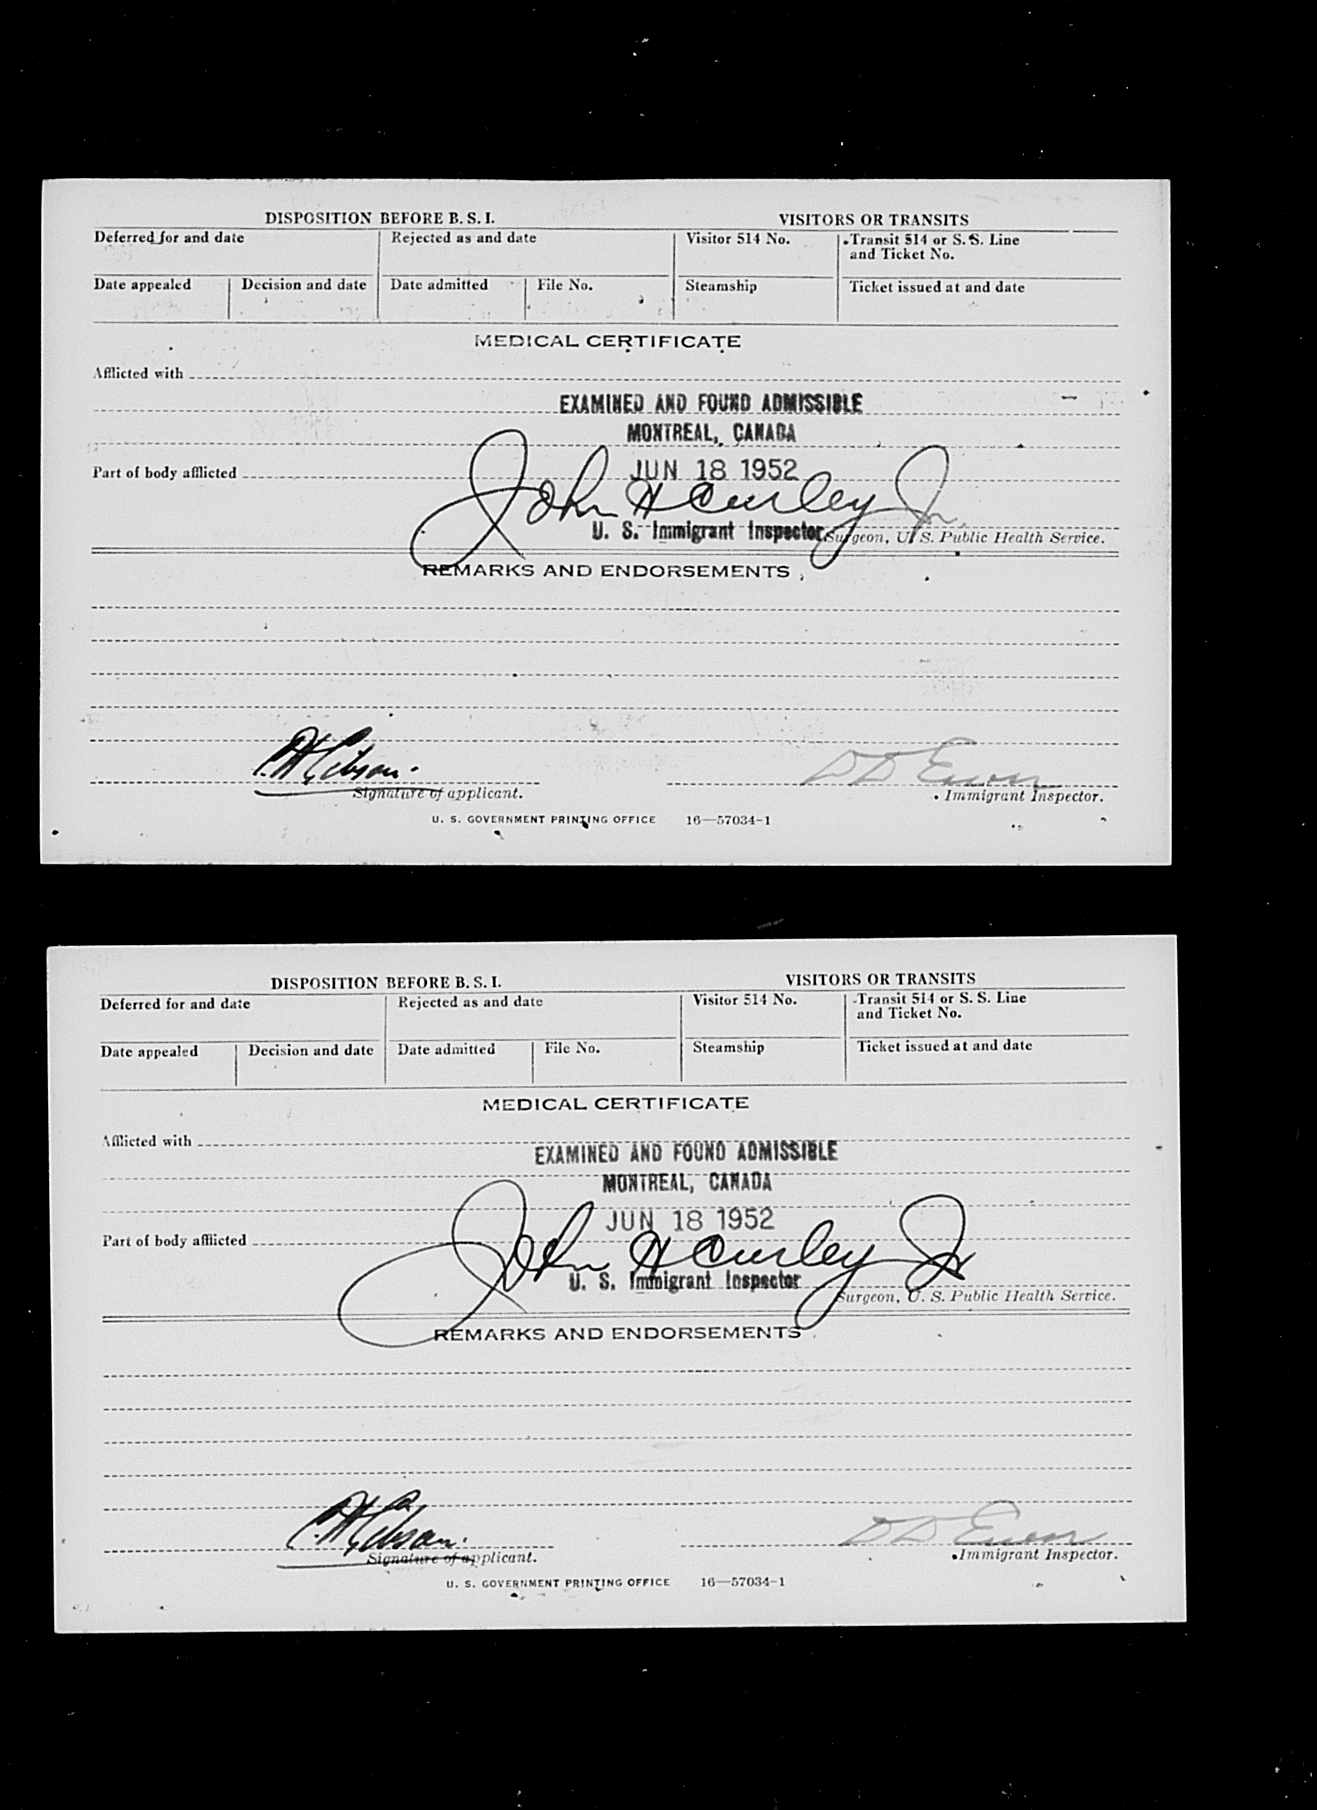 DISPOSITION BEFORE B. S. I. VISITORS OR TRANSITS
Deferred for and date Rejected as and date Visitor 514 No. Transit 514 or S. S. Line
and Ticket No.
Date appealed Decision and date Date admitted File No. Steamship Ticket issued at and date
MEDICAL CERTIFICATE
Afflicted with
EXAMINED AND FOUND ADMISSIBLE
MONTREAL, CANADA
Part of body afflicted JUN 18 1952
John H Curley Jr.
U. S. Immigrant Inspector Surgeon, U. S. Public Health Service.
REMARKS AND ENDORSEMENTS
C. H. Gibson.
Signature of applicant. Immigrant Inspector.
U. S. GOVERNMENT PRINTING OFFICE 16—57034-1
DISPOSITION BEFORE B. S. I. VISITORS OR TRANSITS
Deferred for and date Rejected as and date Visitor 514 No. Transit 514 or S. S. Line
and Ticket No.
Date appealed Decision and date Date admitted File No. Steamship Ticket issued at and date
MEDICAL CERTIFICATE
Afflicted with
EXAMINED AND FOUND ADMISSIBLE
MONTREAL, CANADA
JUN 18 1952
Part of body afflicted
John H Curley Jr
U. S. Immigrant Inspector
Surgeon, U. S. Public Health Service.
REMARKS AND ENDORSEMENTS
C. H. Gibson.
Signature of applicant. Immigrant Inspector.
U. S. GOVERNMENT PRINTING OFFICE 16—57034-1